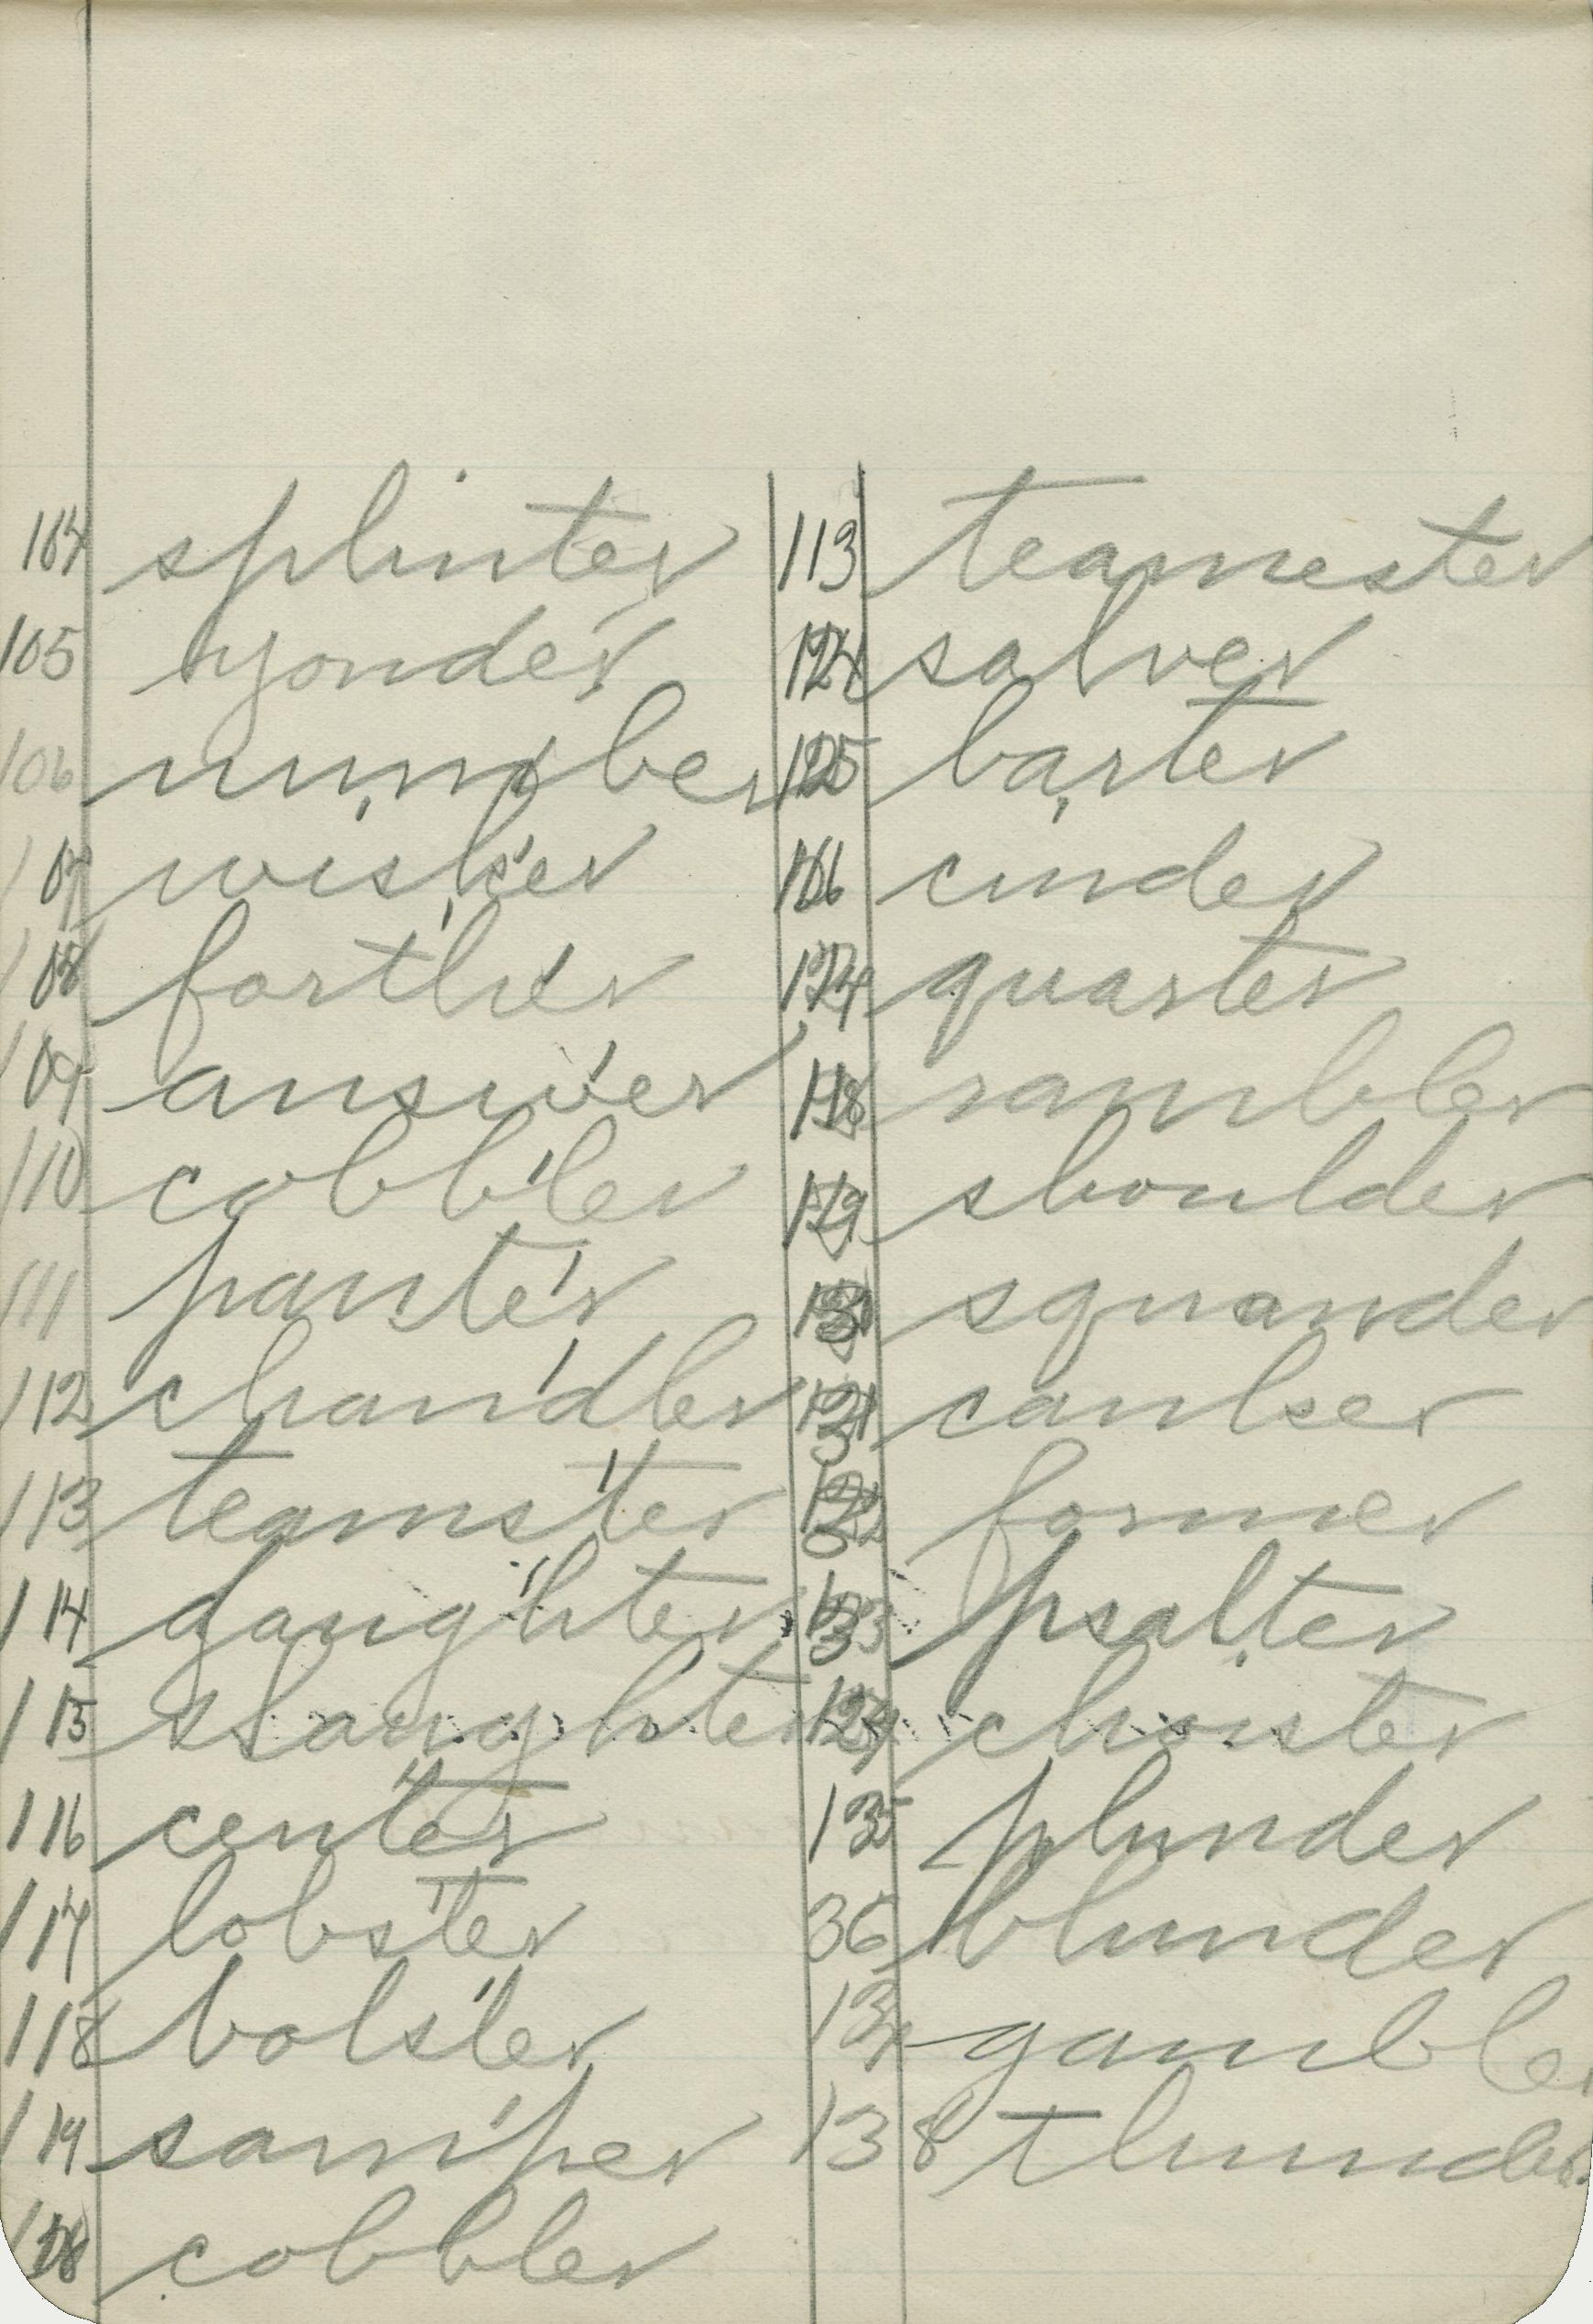 104 splinter
105 yonder
106 number
107 wisker
108 farther
109 answer
110 cobbler
111 panter
112 chandler
113 teamster
114 daughter
115 slaughter
116 center
117 lobster
118 bolster
119 samper
cobbler
113 teamester
124 salver
125 barter
cinder
quarter
118 rambler
shoulder
squander
caulser
former
psalter
cloister
135 plunder
36 blunder
137 gambler
138 thunder